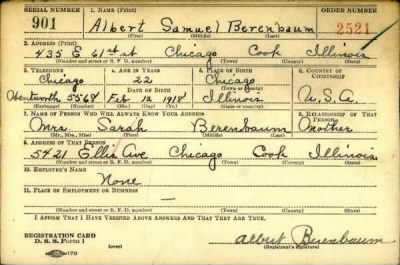 SERIAL NUMBER 1. NAME (Print) ORDER NUMBER
901 Albert Samuel Berenbaum 2521
(First) (Middle) (Last)
2. ADDRESS (Print)
435 E 61st st Chicago Cook Illinois
(Number and street or R. F. D. number) (Town) (County) (State)
3. TELEPHONE 4. AGE IN YEARS 5. PLACE OF BIRTH 6. COUNTRY OF CITIZENSHIP
Chicago 22 Chicago
DATE OF BIRTH (Town or county)
Wentworth 5568 Feb 12 1918 Illinois U.S.A.
(Exchange) (Number) (Mo.) (Day) (Yr.) (State or country)
7. NAME OF PERSON WHO WILL ALWAYS KNOW YOUR ADDRESS 8. RELATIONSHIP OF THAT PERSON
Mrs. Sarah Berenbaum Mother
(Mr., Mrs., Miss) (First) (Middle) (Last)
9. ADDRESS OF THAT PERSON
5421 Ellis Ave Chicago Cook Illinois
(Number and street or R. F. D. number) (Town) (County) (State)
10. EMPLOYER'S NAME
None
11. PLACE OF EMPLOYMENT OR BUSINESS
—
(Number and street or R. F. D. number) (Town) (County) (State)
I AFFIRM THAT I HAVE VERIFIED ABOVE ANSWERS AND THAT THEY ARE TRUE.
REGISTRATION CARD
D. S. S. Form 1 (over) Albert Berenbaum
(Registrant's signature)